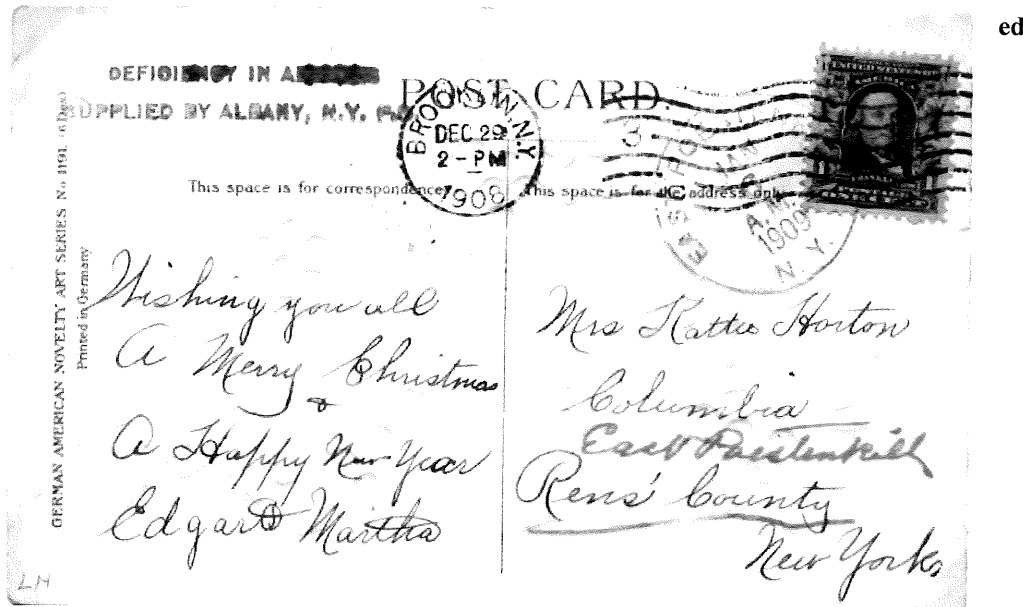 ed
DEFICIENCY IN ADDRESS
SUPPLIED BY ALBANY, N.Y. P.O.
POST CARD.
BROOKLYN, N.Y.
DEC 29
2 - PM
1908
3
JAN
A.M.
1909
N. Y.
This space is for correspondence
This space is for the address only.
GERMAN AMERICAN NOVELTY ART SERIES No. 1191. (6 Dgs.)
Printed in Germany
Wishing you all
A Merry Christmas
&
A Happy New Year
Edgar & Martha
LH
Mrs Kattie Horton
Columbia
East Poestenkill
Rens' County
New York